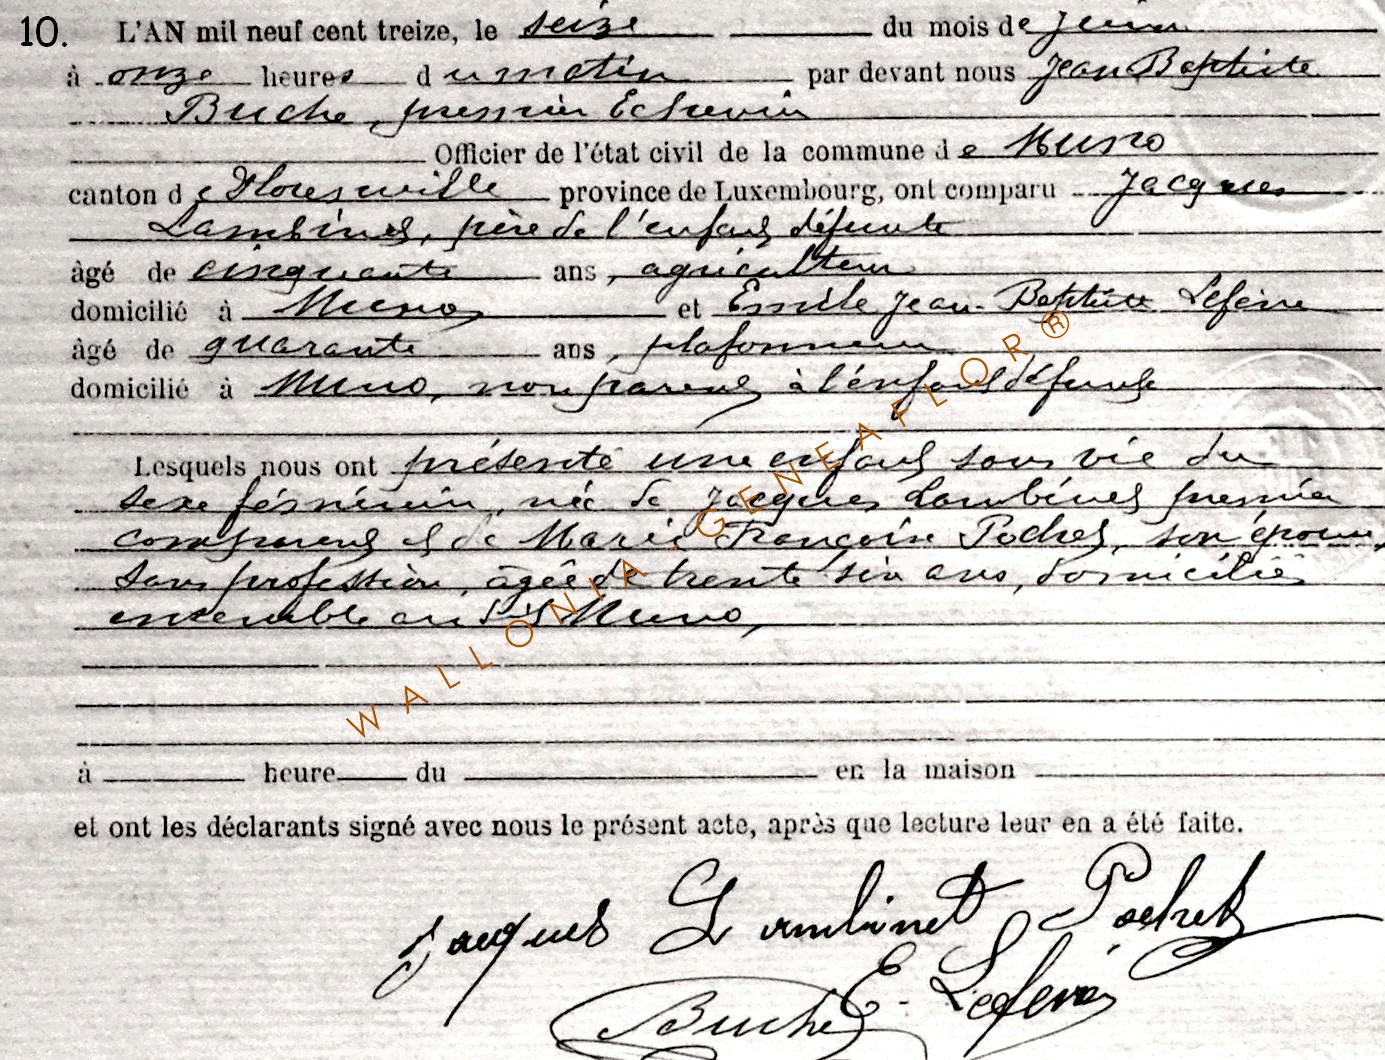 10. L'AN mil neuf cent treize, le seize du mois de juin
à onze heures du matin par devant nous Jean Baptiste
Buche, premier Echevin
Officier de l'état civil de la commune de Muno
canton de Florenville province de Luxembourg, ont comparu Jacques
Lambinet, père de l'enfant défunte
âgé de cinquante ans, agriculteur
domicilié à Muno et Emile Jean-Baptiste Lefèvre
âgé de quarante ans, plafonneur
domicilié à Muno, non parent à l'enfant défunte
Lesquels nous ont présenté une enfant sans vie du
sexe féminin, née de Jacques Lambinet premier
comparant et de Marie Françoise Pochet, son épouse,
sans profession, âgée de trente six ans, domiciliés
ensemble au dit Muno,
à heure du en la maison
et ont les déclarants signé avec nous le présent acte, après que lecture leur en a été faite.
Jacques Lambinet Pochet
E. Lefèvre
Buche
WALLONIA GENEAFLOR ®